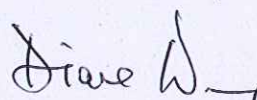 Diane W